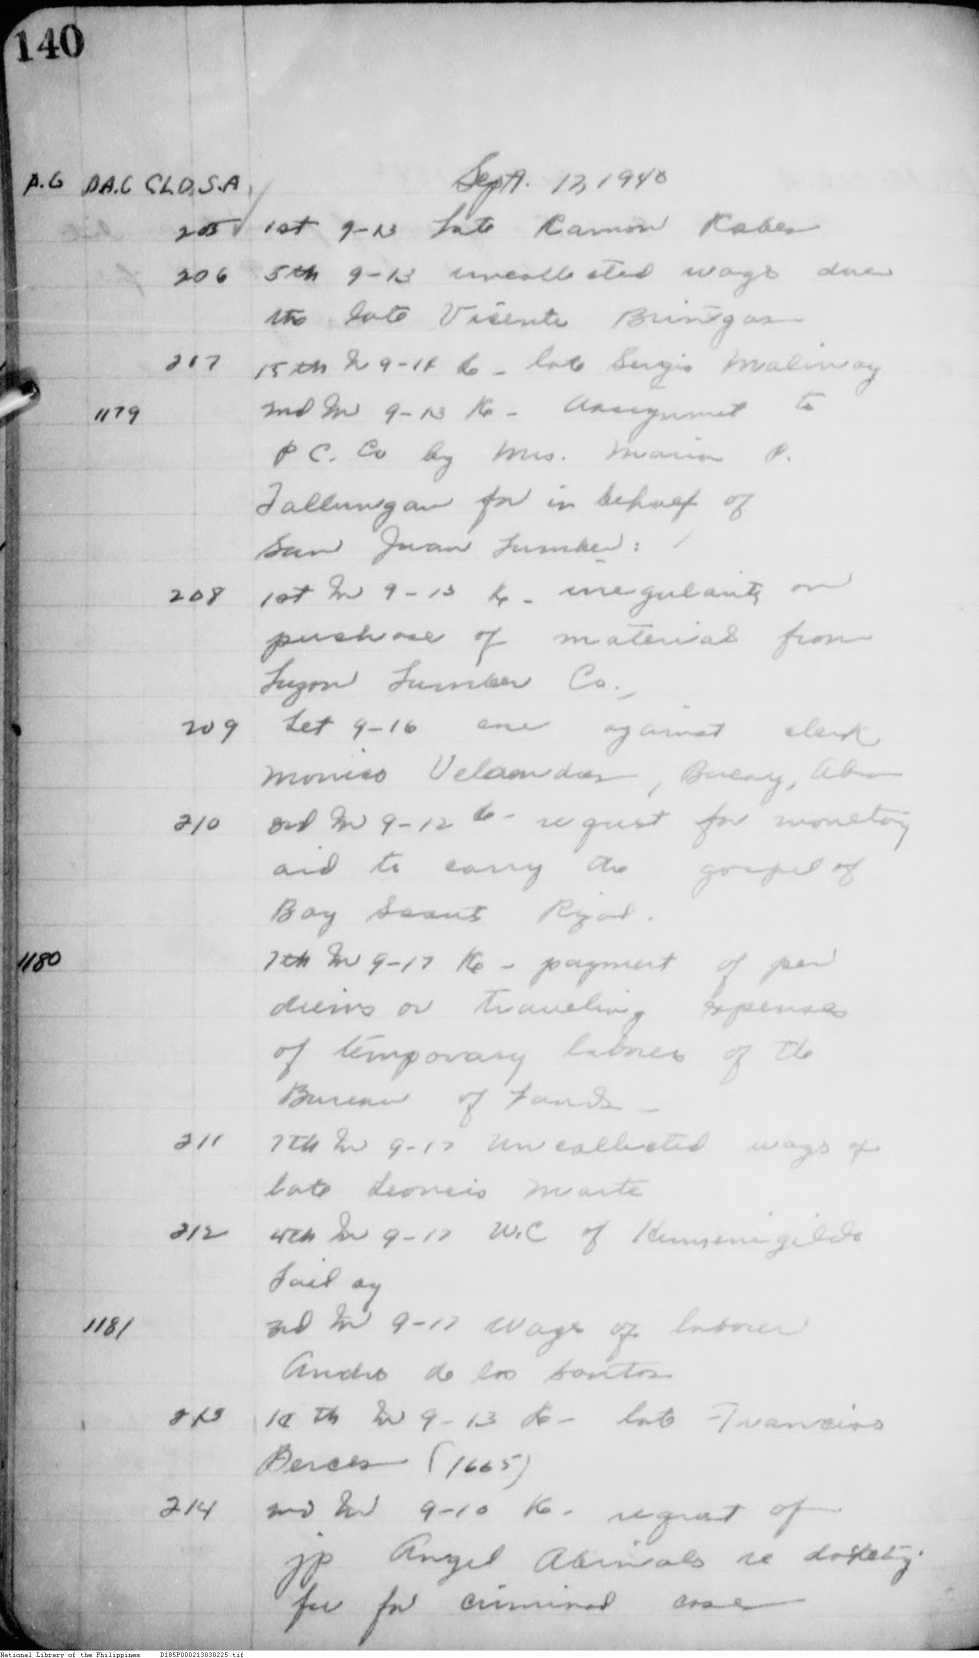 140
A.G DA.G CLD.S.A. Sept. 17, 1940
205 1st 9-13 Late Ramon
206 5th 9-13 uncollected wags due
the late Vicente Bringas
207 15th In 9-14 Re - late Sergio Maliway
1179 2nd In 9-13 Re - Assignment to
P.C. Co by Mrs. Maria P.
for in behalf of
San Juan Lumber:
208 1st In 9-13 Re - irregularity on
purchase of material from
Luzon Lumber Co.,
209 Let 9-16 against clerk
Bucay, Abra
210 3rd In 9-12 Re - request for monetary
aid to carry the gospel of
Boy Scouts Rizal.
1180 7th In 9-17 Re - payment of per
diems or traveling expenses
of temporary laborers of the
Bureau of Lands -
211 7th In 9-17 Uncollected wags of
late Marte
212 4th In 9-17 W.C of
1181 3rd In 9-17 Wage of laborer
Andres de los Santos
213 In 9-13 Re - late Francisco
Berces (1665)
214 2nd In 9-10 Re - request of
jp Angel re docketing
fee for criminal case
National Library of the Philippines D185P000213838225.tif